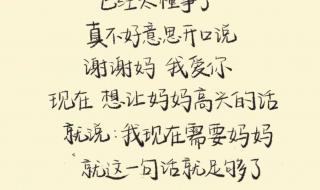 已经太懂事了
真不好意思开口说
谢谢妈 我爱你
现在 想让妈妈高兴的话
就说:我现在需要妈妈
就这一句话就足够了